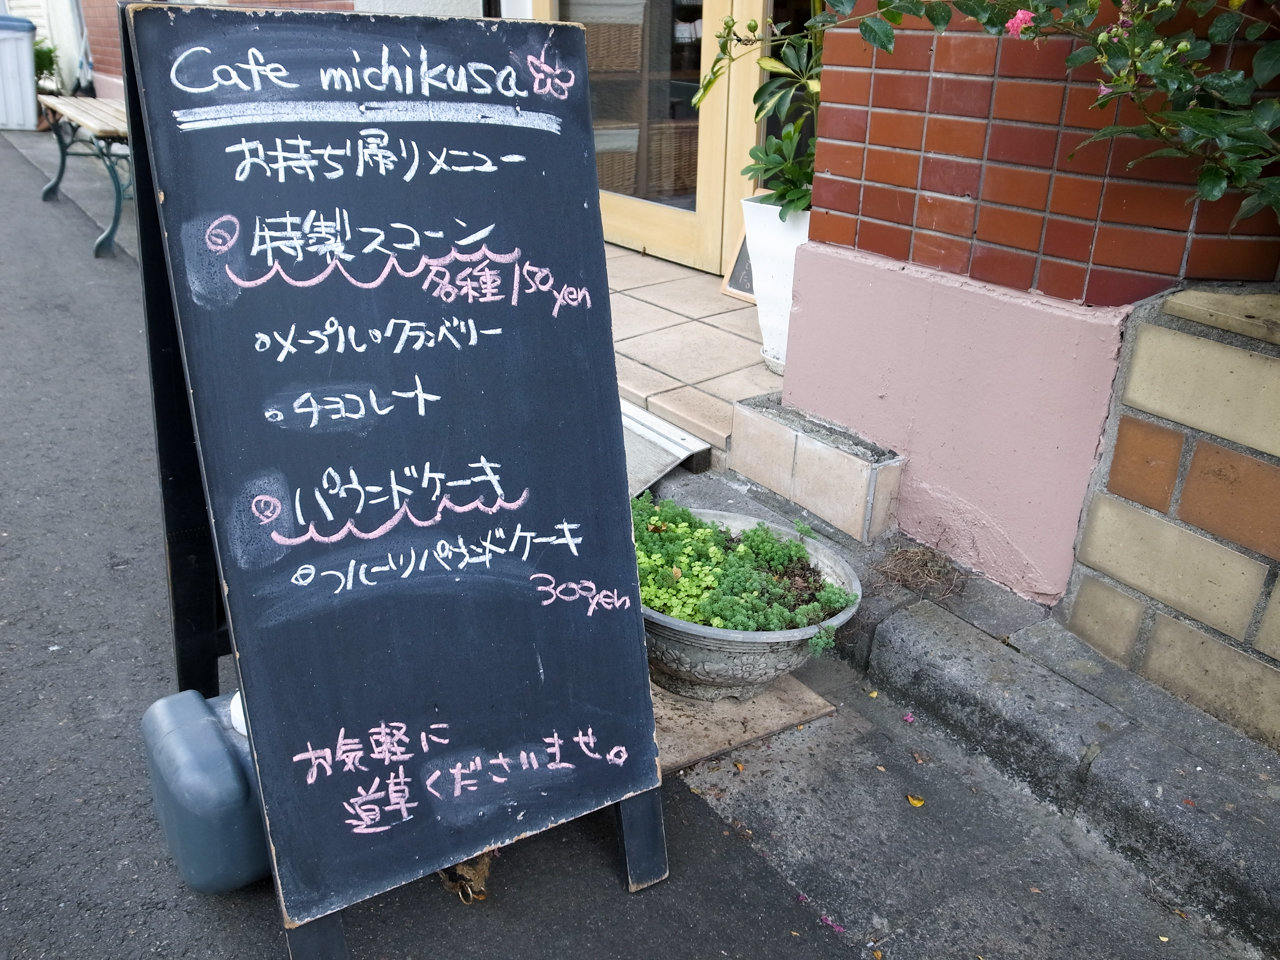 Cafe michikusa
お持ち帰りメニュー
特製スコーン
各種150yen
。メープル。クランベリー
。チョコレート
パウンドケーキ
。フルーツパウンドケーキ
300yen
お気軽に
道草くださいませ。